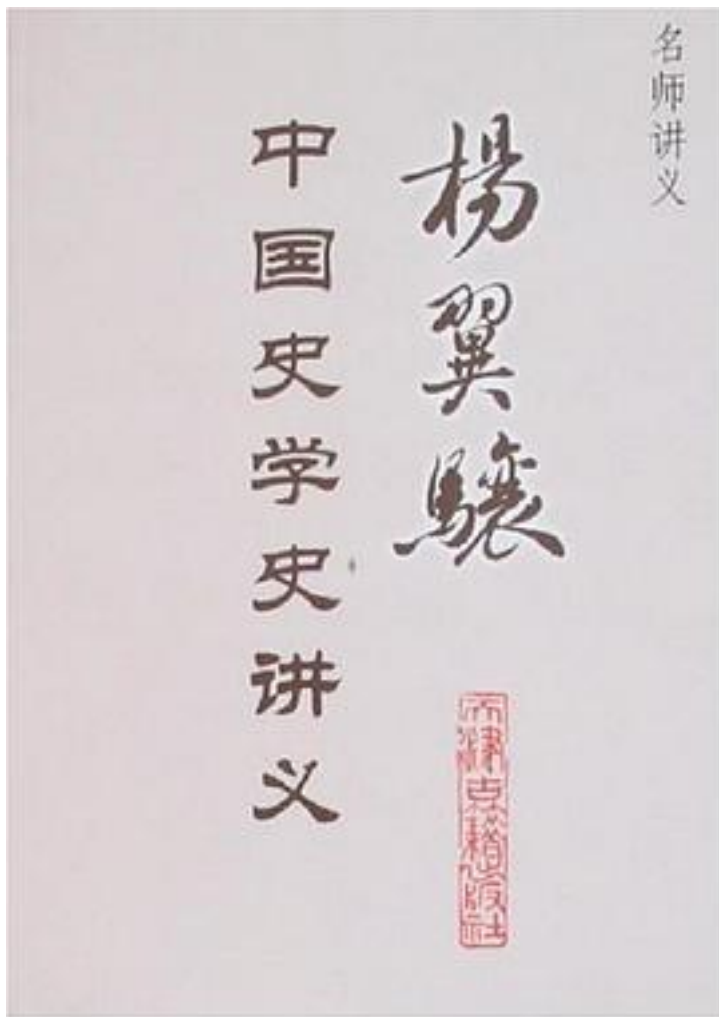 名师讲义
杨翼骧
中国史学史讲义
天津古籍出版社